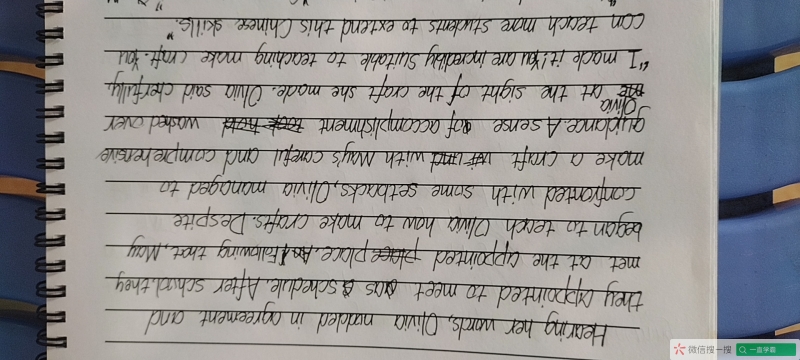 Hearing her words, Olivia nodded in agreement and
they appointed to meet as a schedule. After school, they
met at the appointed place. Following that, May
began to teach Olivia how to make crafts. Despite
confronted with some setbacks, Olivia managed to
make a craft with May's careful and comprehensive
guidance. A sense of accomplishment washed over
Olivia
at the sight of the craft she made. Olivia said cherfully,
"I made it! You are incredibly suitable to teaching make craft. You
can teach more students to extend this Chinese skills."
微信搜一搜
一直学霸